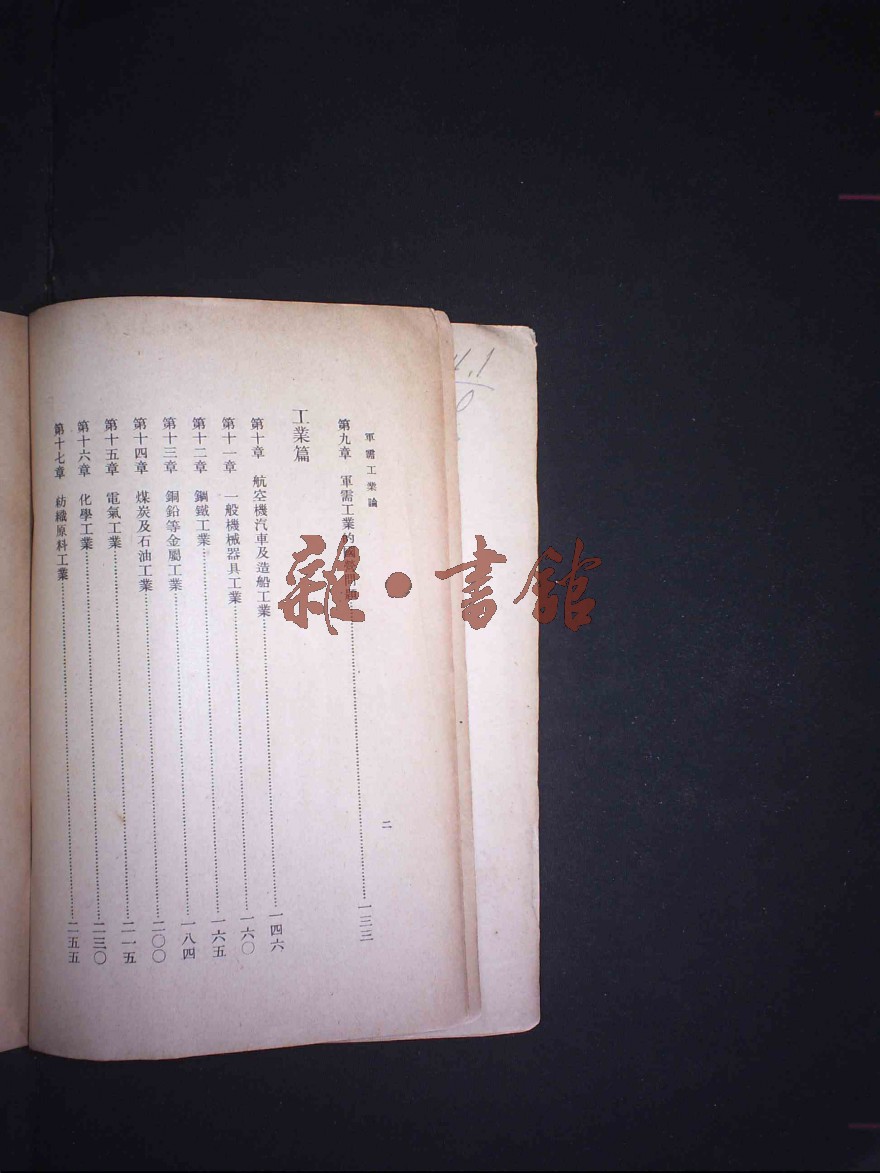 軍需工業論
二
第九章 軍需工業的國營問題……一三三
工業篇
第十章 航空機汽車及造船工業……一四六
第十一章 一般機械器具工業……一六〇
第十二章 鋼鐵工業……一六五
第十三章 銅鉛等金屬工業……一八四
第十四章 煤炭及石油工業……二〇〇
第十五章 電氣工業……二一五
第十六章 化學工業……二三〇
第十七章 紡織原料工業……二五五
雜·書館